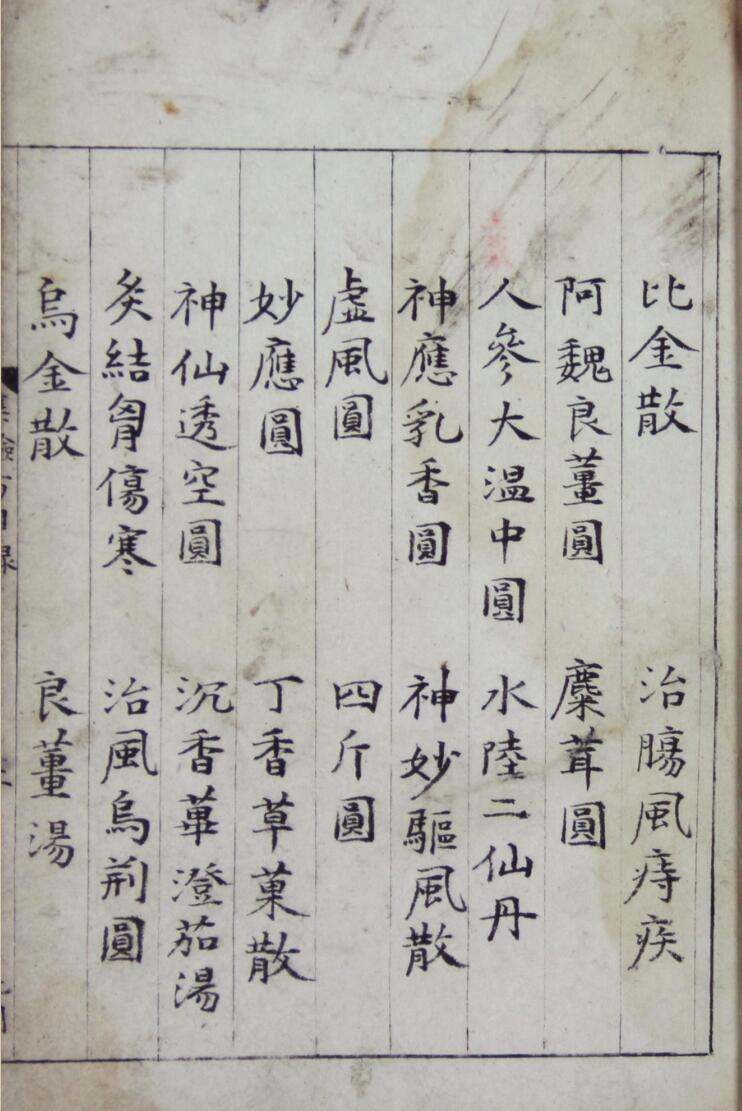 比金散　治腸風痔疾
阿魏良薑圓　麋茸圓
人參大温中圓　水陸二仙丹
神應乳香圓　神妙驅風散
虛風圓　四斤圓
妙應圓　丁香草菓散
神仙透空圓　沉香蓽澄茄湯
灸結胷傷寒　治風烏荆圓
烏金散　良薑湯